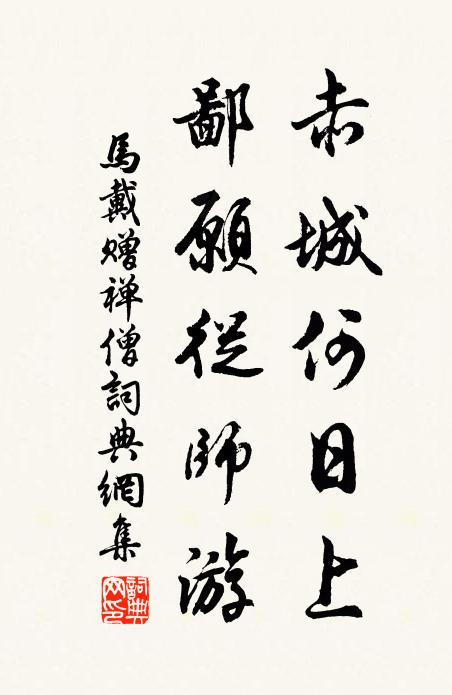 赤城何日上
鄙願從師游
馬戴贈禅僧詞典網集
詞典網印